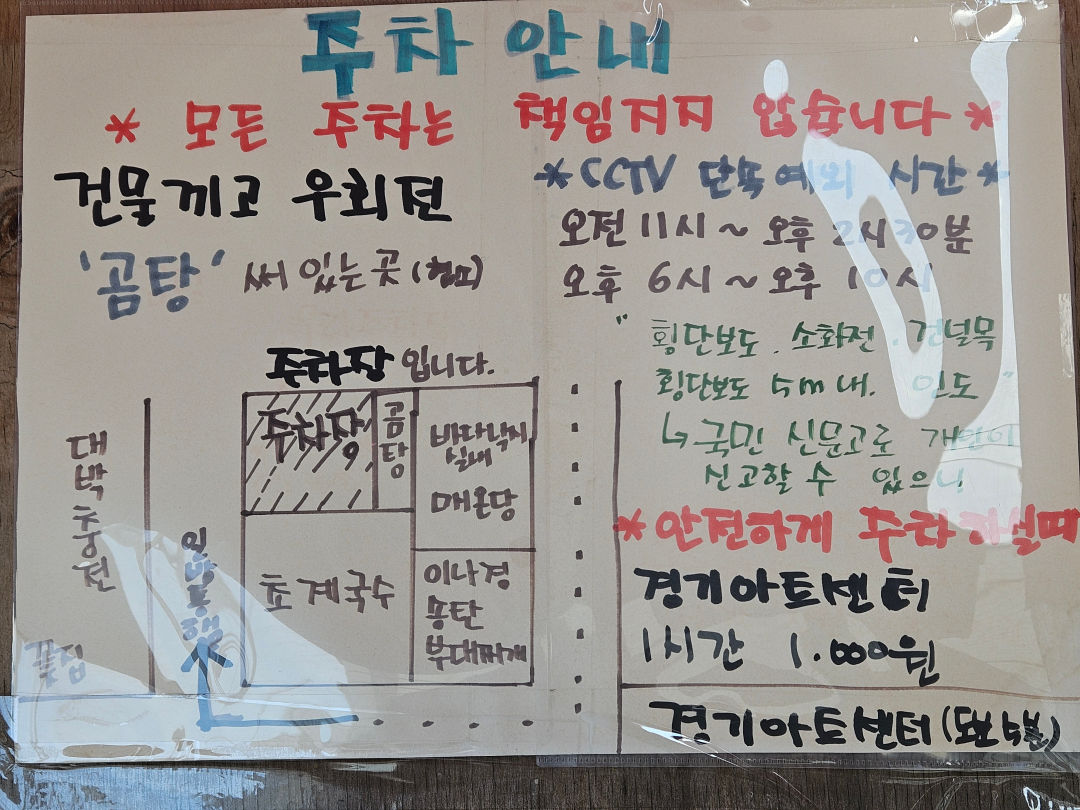 주차 안내
* 모든 주차는 책임지지 않습니다 *
건물끼고 우회전
'곰탕' 써 있는 곳 (협띠)
주차장 입니다.
* CCTV 단속예외 시간 *
오전 11시 ~ 오후 2시 30분
오후 6시 ~ 오후 10시
" 횡단보도 . 소화전 . 건널목
횡단보도 5m내. 인도 "
↳ 국민 신문고로 개인이
신고할 수 있으니
* 안전하게 주차하실때
경기아트센터
1시간 1.000원
경기아트센터 (도보 5분)
대박충전
꽃집
일방통행
주차장
곰탕
바다낚시
실내
매운당
초계국수
이나경
송탄
부대찌개